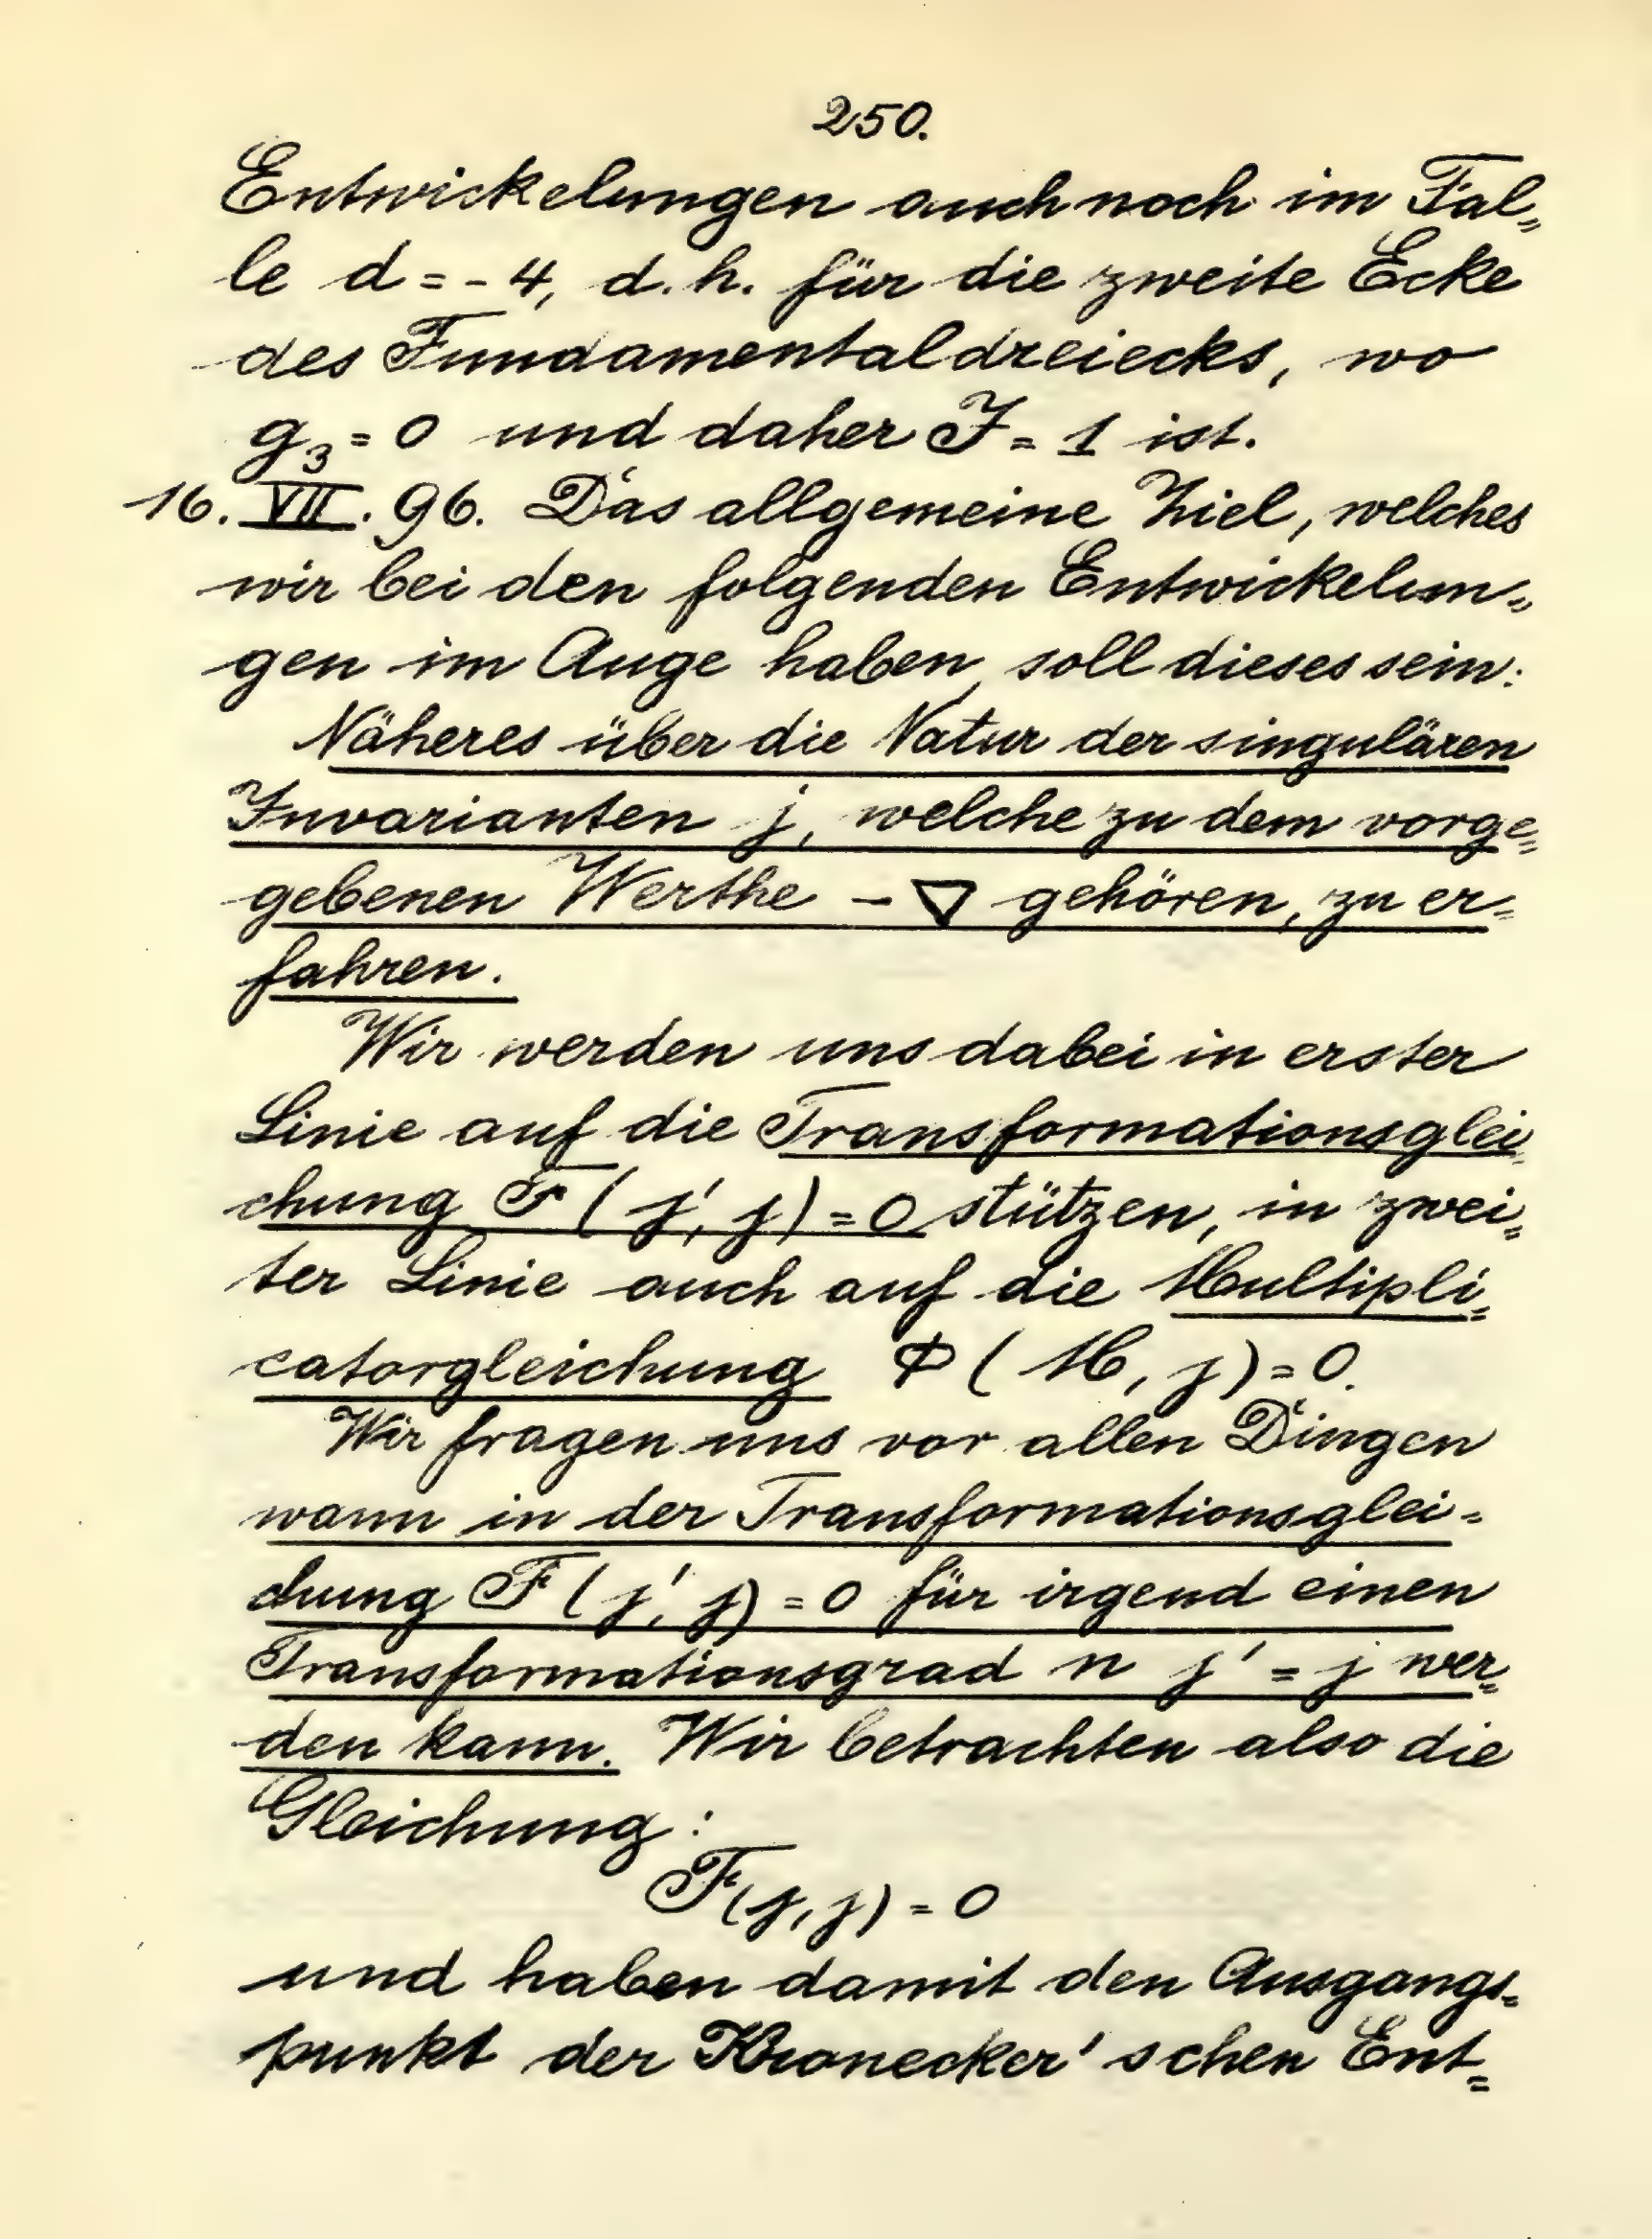 250.
Entwickelungen auch noch im Fal„
le d = - 4, d. h. für die zweite Ecke
des Fundamentaldreiecks, wo
g₃ = 0 und daher J = 1 ist.
16. VII. 96. Das allgemeine Ziel, welches
wir bei den folgenden Entwickelun„
gen im Auge haben, soll dieses sein:
Näheres über die Natur der singulären
Invarianten j, welche zu dem vorge„
gebenen Werthe - ∇ gehören, zu er„
fahren.
Wir werden uns dabei in erster
Linie auf die Transformationsglei„
chung F(j', j) = 0 stützen, in zwei„
ter Linie auch auf die Multipli„
catorgleichung Φ(M, j) = 0.
Wir fragen uns vor allen Dingen
wann in der Transformationsglei-
chung F(j', j) = 0 für irgend einen
Transformationsgrad n j' = j wer„
den kann. Wir betrachten also die
Gleichung:
F(j, j) = 0
und haben damit den Ausgangs-
punkt der Kronecker'schen Ent„